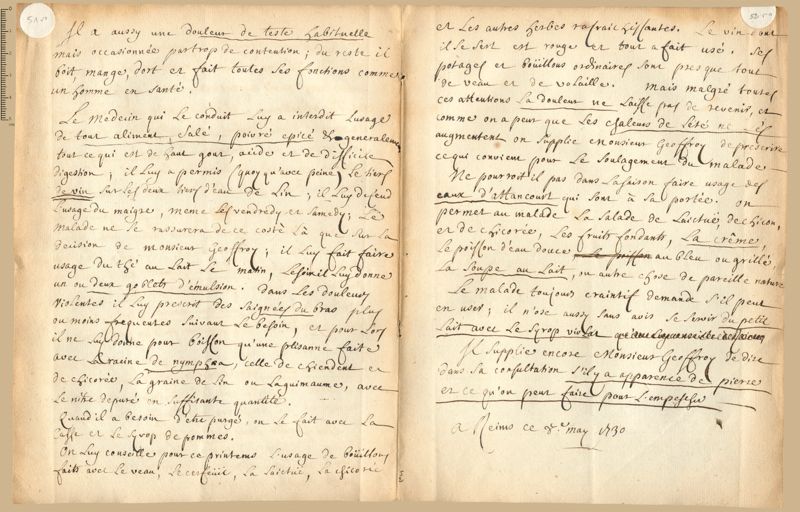 Il a aussy une douleur de teste habituelle
mais occasionnée par trop de contention; du reste il
boit, mange, dort et fait toutes ses fonctions comme
un homme en santé.
Le Medecin qui le conduit luy a interdit l'usage
de tout aliment, salé, poivré epicé & generalement
tout ce qui est de haut gout, acide et de difficile
digestion; il luy a permis (quoy qu'avec peine) le tiers
de vin sur les deux tiers d'eau de Lin; il luy defend
l'usage du maigre, meme les vendredy et samedy; Le
malade ne se rassurera de ce costé là que sur la
decision de monsieur Geoffroy; il luy fait faire
usage du thé au Lait le matin, le soir il luy donne
un ou deux goblets d'émulsion. dans les douleurs
violentes il luy prescrit des saignées du bras plus
ou moins frequentes suivant le besoin, et pour lors
il ne luy donne pour boisson qu'une ptisanne faite
avec la racine de nymphæa, celle de chiendent et
de chicorée, la graine de lin ou la guimaume, avec
le nitre depuré en suffisante quantité.
Quand il a besoin d'etre purgé, on le fait avec la
Casse et le syrop de pommes.
On luy conseille pour ce printems l'usage de boüillons
faits avec le veau, le cerfeuil, la laictuë, la chicorée
et les autres herbes rafraichissantes. Le vin dont
il se sert est rouge et tout a fait usé. Ses
potages et boüillons ordinaires sont presque tout
de veau et de volaille. mais malgré toutes
ces attentions la douleur ne laisse pas de revenir, et
comme on a peur que les chaleurs de l'eté ne les
augmentent on supplie monsieur Geoffroy de prescrire
ce qui convient pour le soulagement du malade
Ne pourroit il pas dans la saison faire usage des
eaux d'attancourt qui sont à sa portée. on
permet au malade la salade de laictuë, de chicon,
et de chicorée, les fruits fondants, la crême,
le poisson d'eau douce au bleu ou grillé
la soupe au lait, ou autre chose de pareille nature
Le malade toujours craintif demande s'il peut
en user; il n'ose aussy sans avis se servir du petit
lait avec le syrop violat
Il supplie encore Monsieur Geoffroy de dire
dans sa consultation s'il y a apparence de pierre
et ce qu'on peut faire pour l'empescher
A Reims ce 8.e may 1730